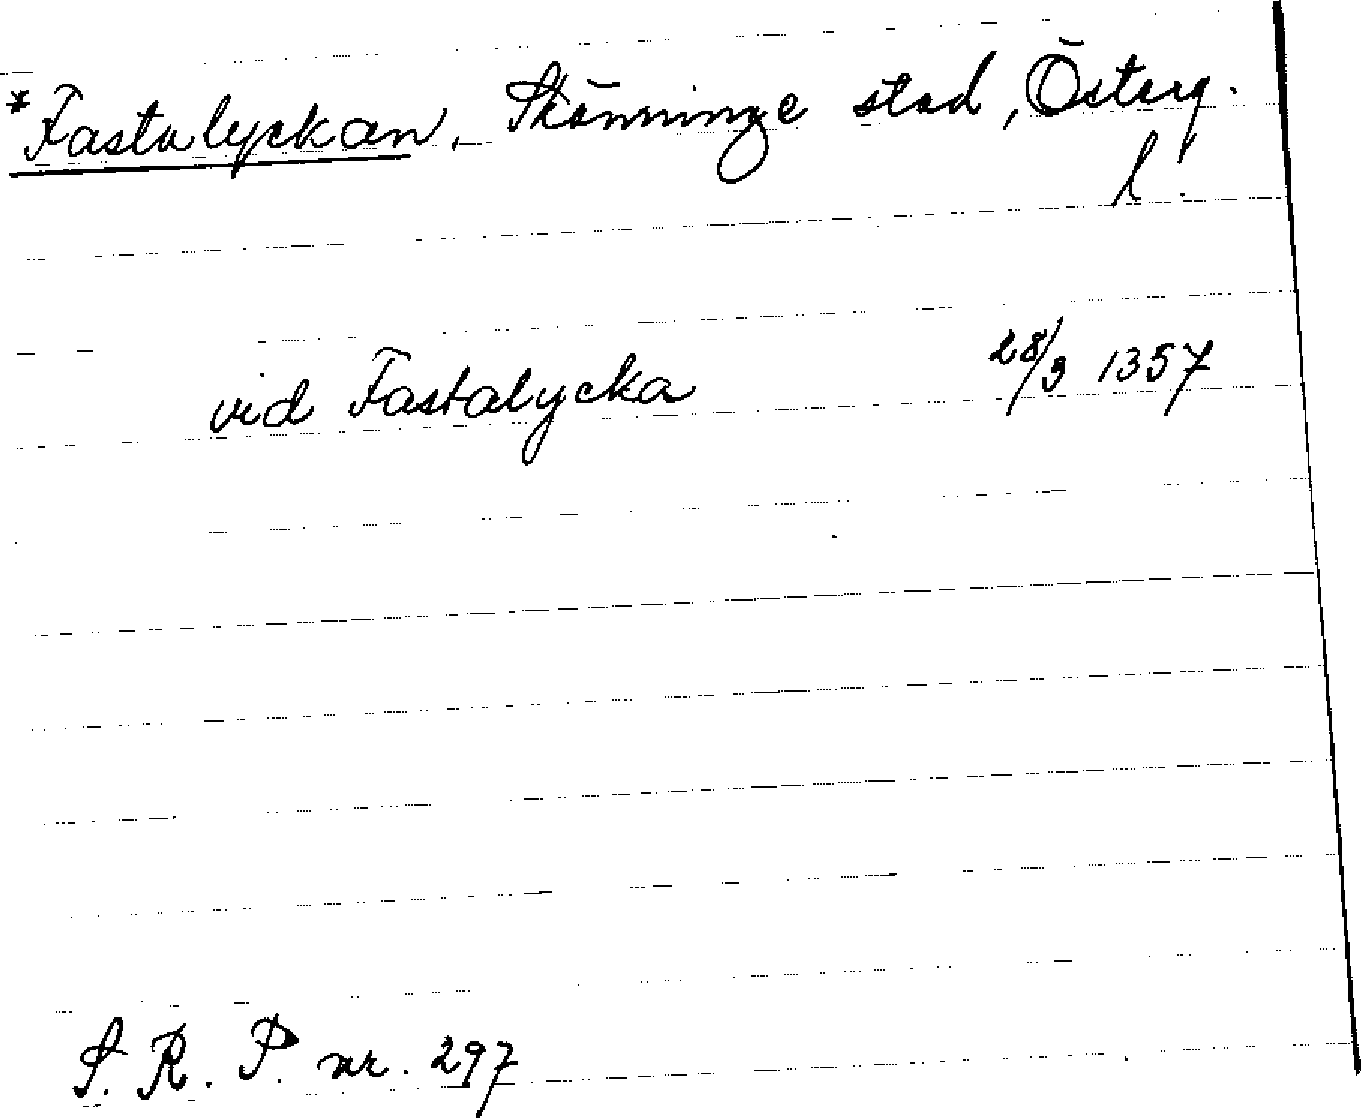 *Fastalyckan, Skänninge stad, Österg.
l.
vid Fastalycka 28/3 1357
S. R. P. nr. 297